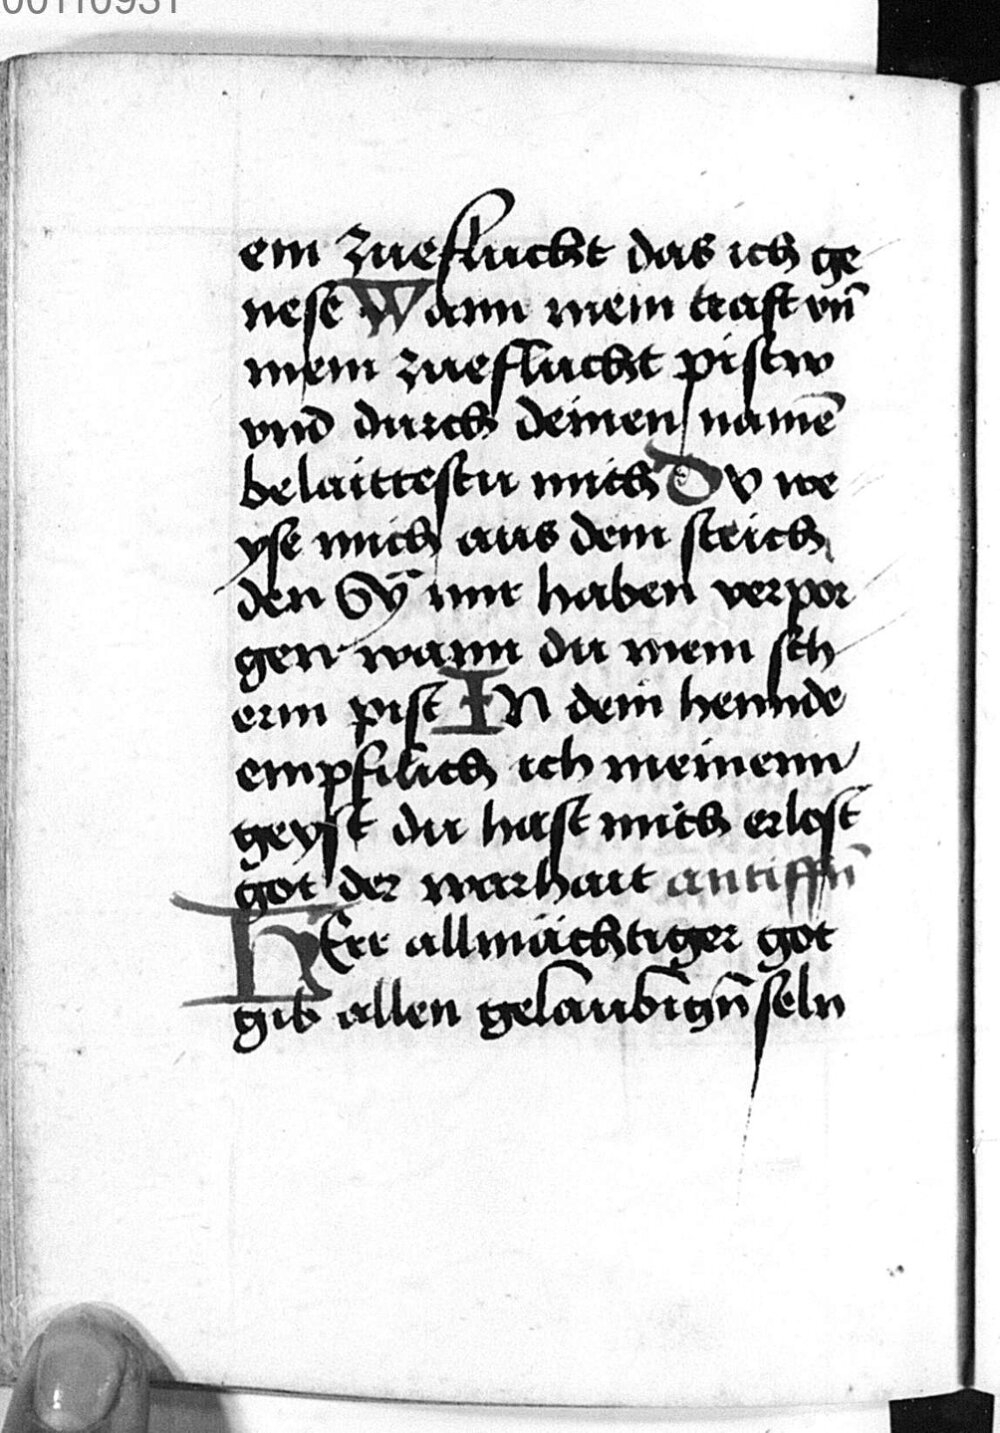 00110931
ein zueflucht das ich ge
nese Wann mein craft vn̄
mein zueflucht pistw
vnd durch deinen namē
belaittestu mich Dv we
yse mich aus dem strich
den Sÿ mir haben verpor
gen wann du mein sch
erm pist IN dein hennde
empfilich ich meinenn
geyst du hast mich erlost
got der warhait antiffn̄
HErr allmächtiger got
gib allen gelaubign̄ seln